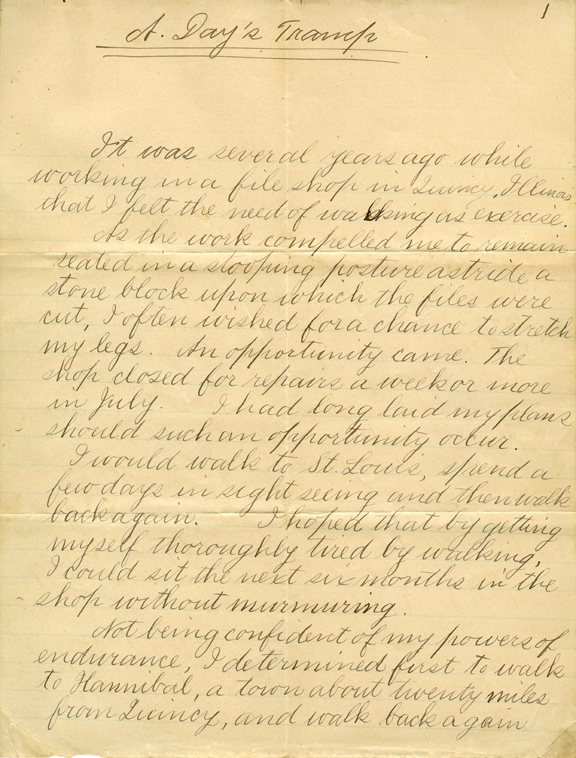 1
A. Day's Tramp
It was several years ago while
working in a file shop in Quincy, Illinois
that I felt the need of walking as exercise.
As the work compelled me to remain
seated in a stooping posture astride a
stone block upon which the files were
cut, I often wished for a chance to stretch
my legs. An opportunity came. The
shop closed for repairs a week or more
in July. I had long laid my plans
should such an opportunity occur.
I would walk to St. Louis, spend a
few days in sight seeing and then walk
back again. I hoped that by getting
myself thoroughly tired by walking,
I could sit the next six months in the
shop without murmuring.
Not being confident of my powers of
endurance, I determined first to walk
to Hannibal, a town about twenty miles
from Quincy, and walk back again